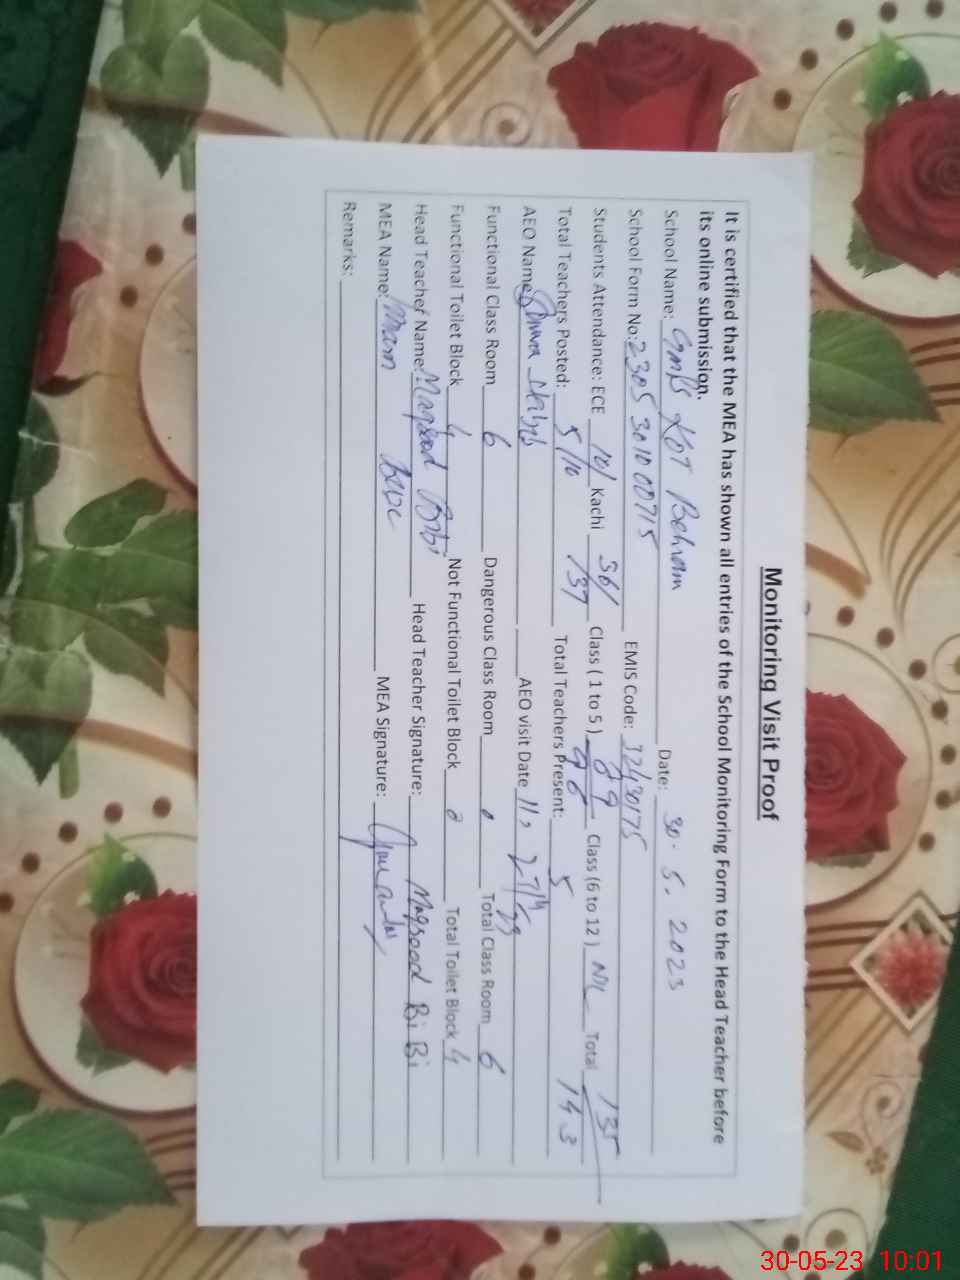 Monitoring Visit Proof
It is certified that the MEA has shown all entries of the School Monitoring Form to the Head Teacher before
its online submission.
School Name: GMPS Kot Behram Date: 30.5.2023
School Form No: 2305301000715 EMIS Code: 32430175
Students Attendance: ECE 10/10 Kachi 36/37 Class ( 1 to 5 ) 89/96 Class (6 to 12 ) NIL Total 135/143
Total Teachers Posted: 5 Total Teachers Present: 5
AEO Name: AEO visit Date 11, 27/4/23
Functional Class Room 6 Dangerous Class Room 0 Total Class Room 6
Functional Toilet Block 4 Not Functional Toilet Block 0 Total Toilet Block 4
Head Teacher Name: Maqsood Bibi Head Teacher Signature: Maqsood BiBi
MEA Name: MEA Signature:
Remarks:
30-05-23 10:01